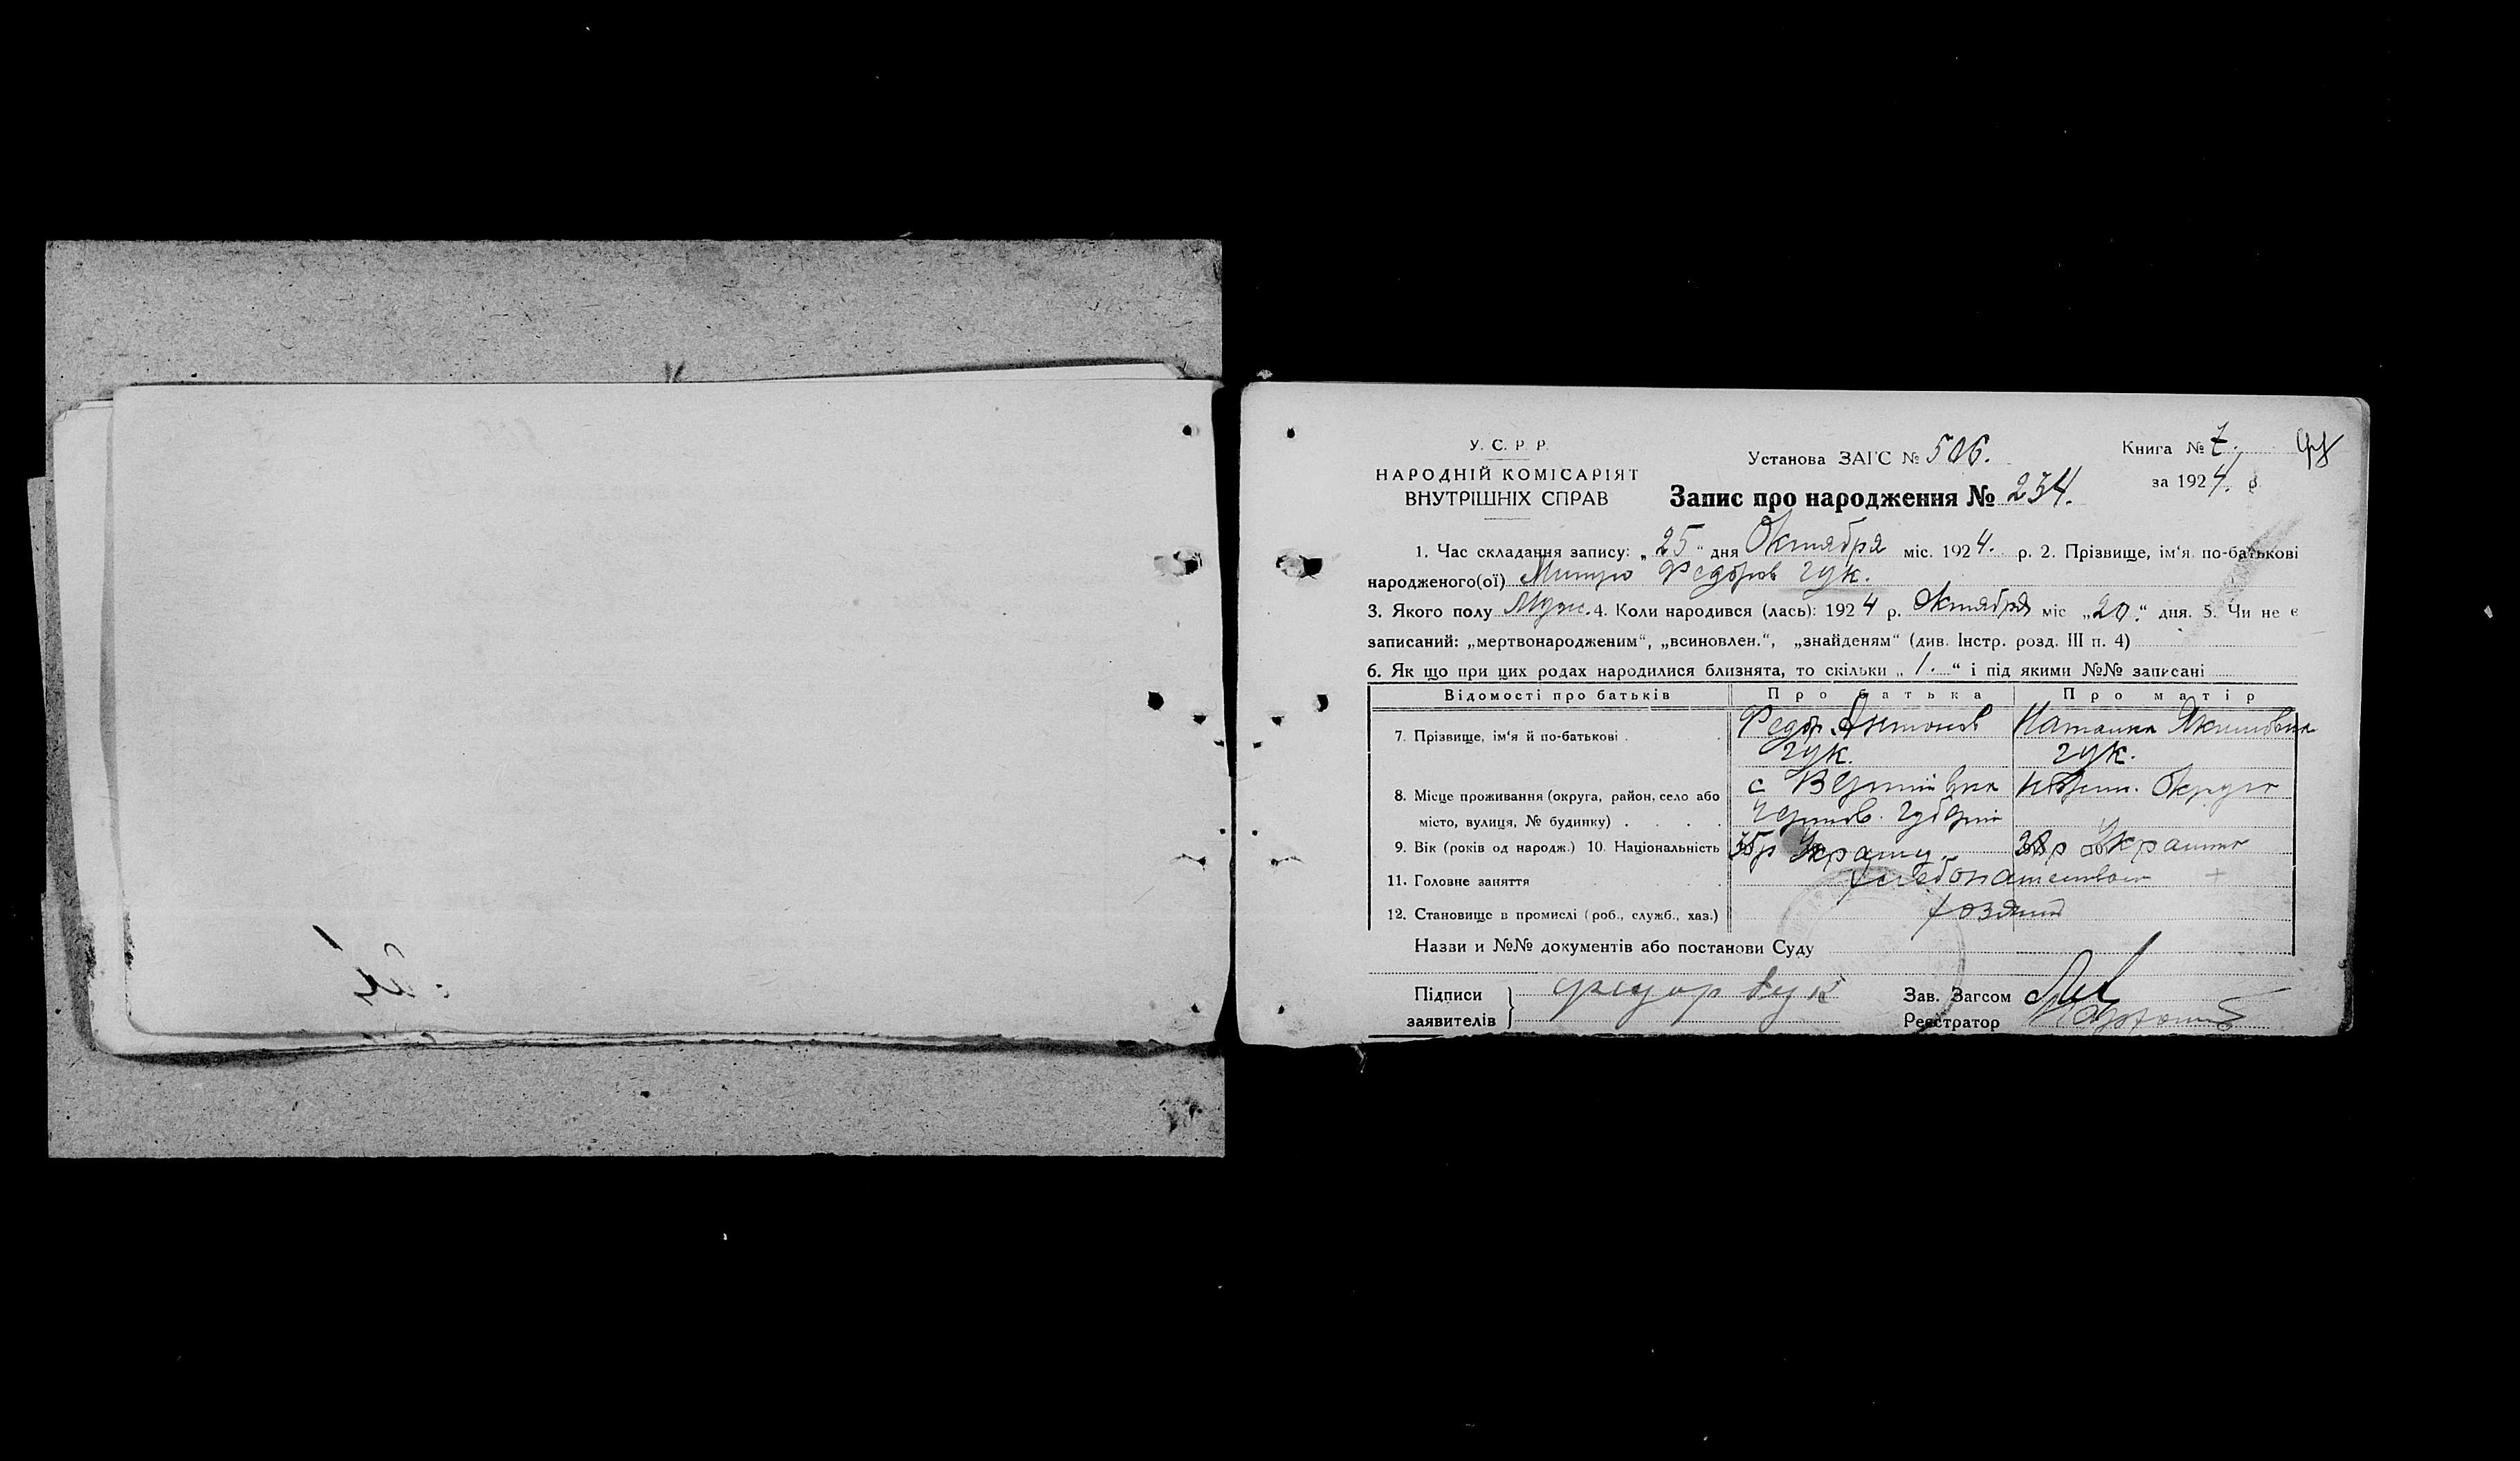 У. С. Р. Р.
НАРОДНІЙ КОМІСАРІЯТ
ВНУТРІШНІХ СПРАВ
Установа ЗАГС № 506.
Книга № 7.
за 1924. р.
Запис про народження № 234.
1. Час складання запису: „25“ дня Октября міс. 1924. р. 2. Прізвище, ім‘я по-батькові
народженого(ої) Федоров Гук.
3. Якого полу Муж. 4. Коли народився (лась): 1924 р. Октября міс „20.“ дня. 5. Чи не є
записаний: „мертвонародженим“, „всиновлен.“, „знайденям“ (див. Інстр. розд. III п. 4)
6. Як що при цих родах народилися близнята, то скільки „1.“ і під якими №№ записані
Відомості про батьків Про батька Про матір
7. Прізвище, ім‘я й по-батькові Федор Антонов Гук. Наталка Якимовна Гук.
8. Місце проживання (округа, район, село або с Округа
місто, вулиця, № будинку) Губерні
9. Вік (років од народж.) 10. Національність 35р 38р
11. Головне заняття хлебопашество
12. Становище в промислі (роб., служб., хаз.) хозяин
Назви и №№ документів або постанови Суду
Підписи
заявителів
Зав. Загсом
Реєстратор